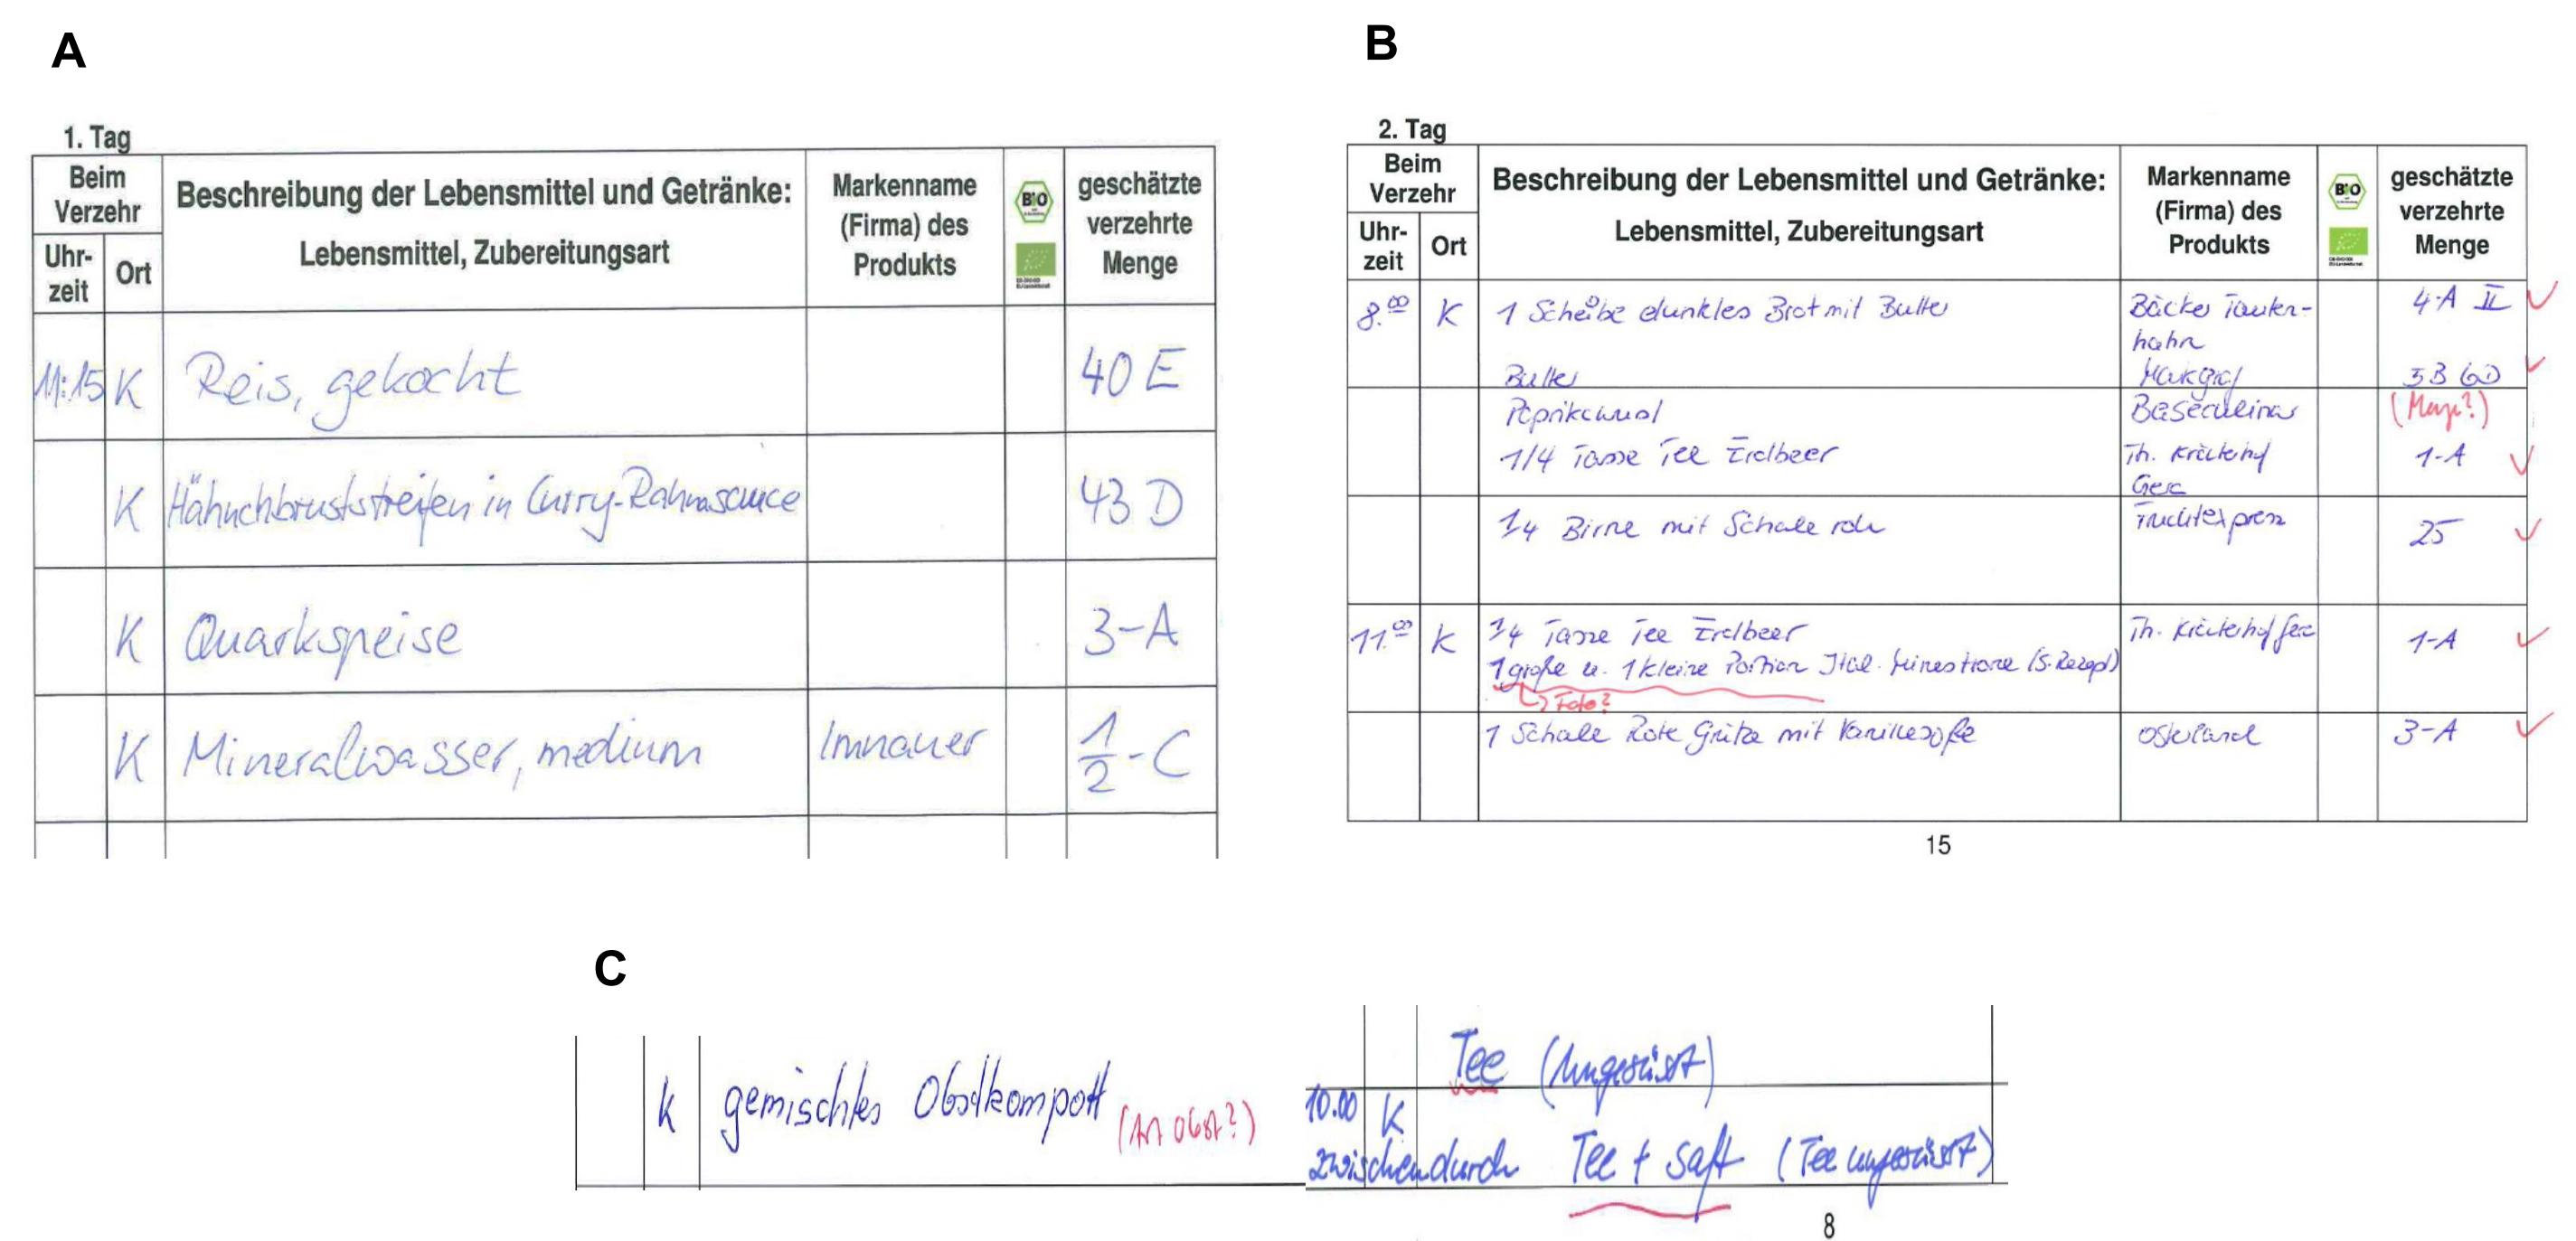 A
1. Tag
Beim Verzehr
Uhr-zeit
Ort
Beschreibung der Lebensmittel und Getränke:
Lebensmittel, Zubereitungsart
Markenname
(Firma) des
Produkts
BIO
geschätzte
verzehrte
Menge
11:15 K Reis, gekocht 40 E
K Hähnchbruststreifen in Curry-Rahmsauce 43 D
K Quarkspeise 3-A
K Mineralwasser, medium Imnauer 1/2-C
B
2. Tag
Beim Verzehr
Uhr-zeit
Ort
Beschreibung der Lebensmittel und Getränke:
Lebensmittel, Zubereitungsart
Markenname
(Firma) des
Produkts
BIO
geschätzte
verzehrte
Menge
8.00 K 1 Scheibe dunkles Brot mit Butter Bäcker Tauten- 4-A II
hahn
Butter
Paprikawurst
1/4 Tasse Tee Erdbeer Th. 1-A
1/4 Birne mit Schale roh 25
11.00 K 1/4 Tasse Tee Erdbeer Th. 1-A
1 große u. 1 kleine Portion Ital. Minestrone (s. Rezept)
Foto?
1 Schale Rote Grütze mit Vanillesoße Osterland 3-A
15
C
k gemischtes Obstkompott (Art Obst?)
Tee (ungesüsst)
10.00 K
zwischendurch Tee + Saft (Tee ungesüsst)
8